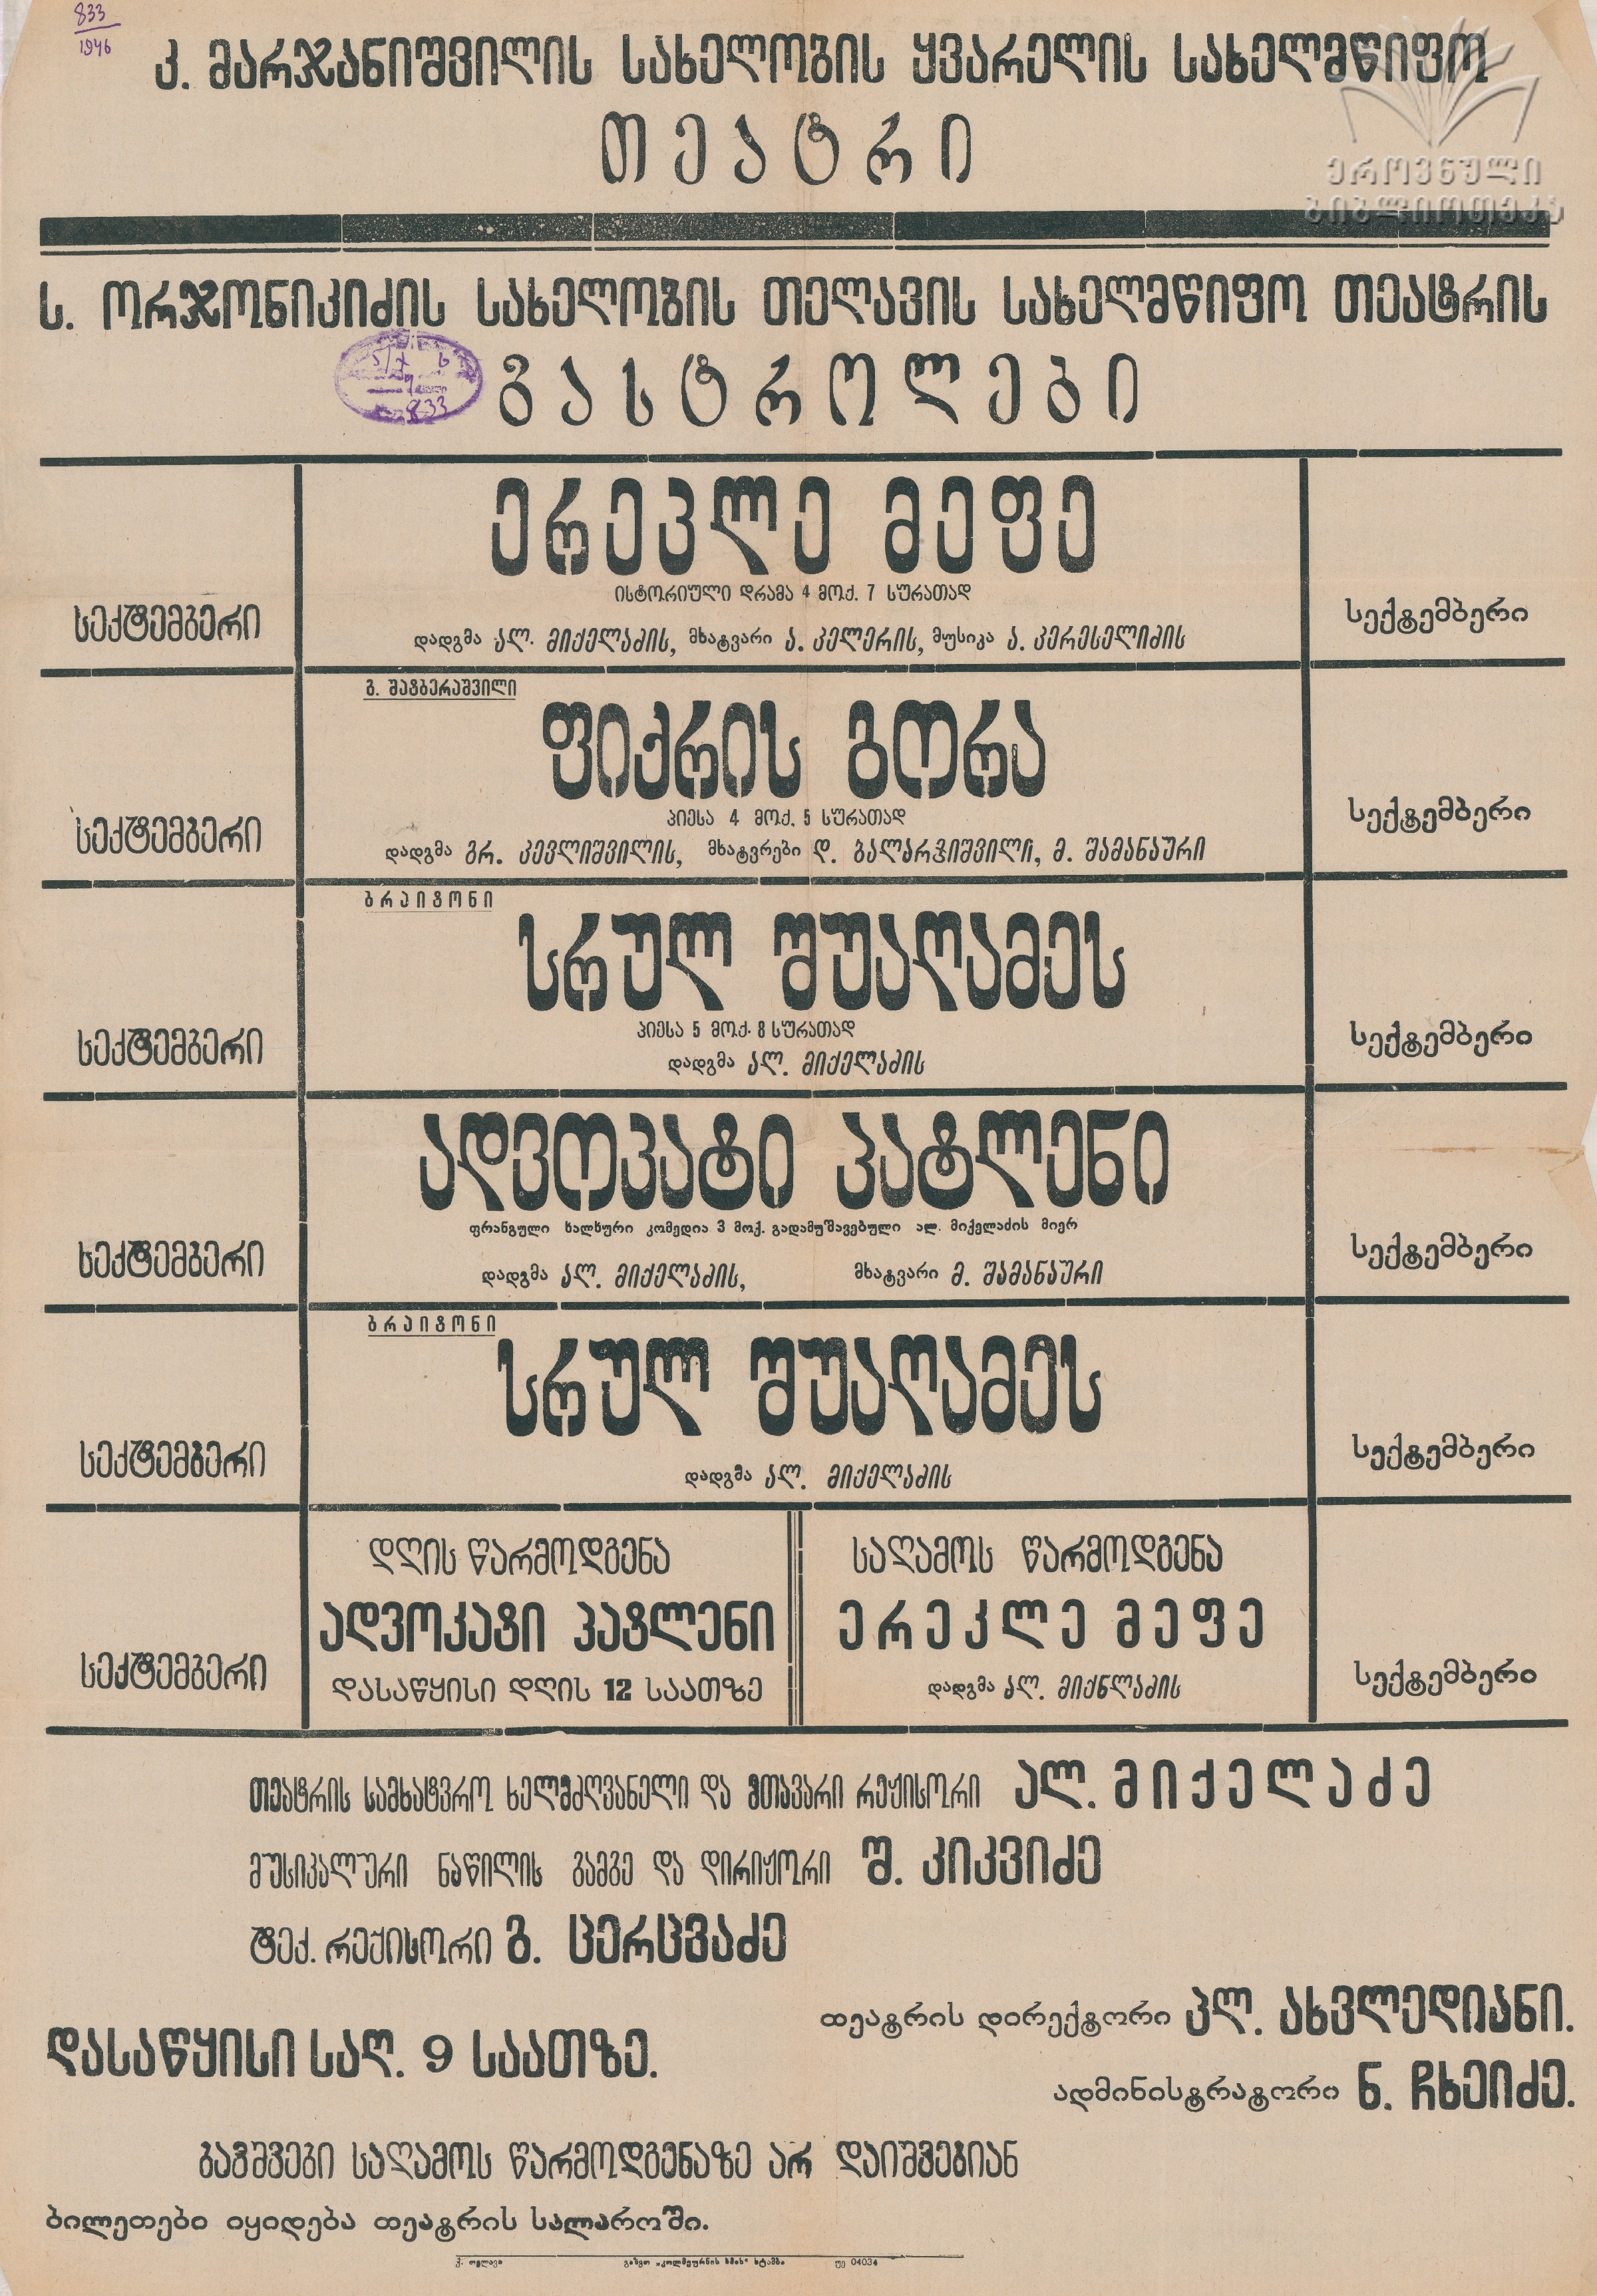 833
1946
კ. მარჯანიშვილის სახელობის ყვარელის სახელმწიფო
თეატრი
ეროვნული
ბიბლიოთეკა
ს. ორჯონიკიძის სახელობის თელავის სახელმწიფო თეატრის
გასტროლები
833
ერეკლე მეფე
ისტორიული დრამა 4 მოქ. 7 სურათად
სექტემბერი
დადგმა ალ. მიქელაძის, მხატვარი ა. კელერის, მუსიკა ა. კერესელიძის
სექტემბერი
გ. შატბერაშვილი
ფიქრის გორა
პიესა 4 მოქ. 5 სურათად
სექტემბერი
დადგმა გრ. კევლიშვილის, მხატვრები დ. ბალარჯიშვილი, მ. შამანაური
სექტემბერი
ბრაიტონი
სრულ შუაღამეს
პიესა 5 მოქ. 8 სურათად
სექტემბერი
დადგმა ალ. მიქელაძის
სექტემბერი
ადვოკატი პატლენი
ფრანგული ხალხური კომედია 3 მოქ. გადამუშავებული ალ. მიქელაძის მიერ
სექტემბერი
დადგმა ალ. მიქელაძის, მხატვარი მ. შამანაური
სექტემბერი
ბრაიტონი
სრულ შუაღამეს
სექტემბერი
დადგმა ალ. მიქელაძის
სექტემბერი
დღის წარმოდგენა
ადვოკატი პატლენი
დასაწყისი დღის 12 საათზე
სექტემბერი
საღამოს წარმოდგენა
ერეკლე მეფე
დადგმა ალ. მიქნლაძის
სექტემბერი
თეატრის სამხატვრო ხელმძღვანელი და მთავარი რეჟისორი ალ. მიქელაძე
მუსიკალური ნაწილის გამგე და დირიჟორი შ. კიკვიძე
ტექ. რეჟისორი გ. ცერცვაძე
თეატრის დირექტორი პლ. ახვლედიანი.
დასაწყისი საღ. 9 საათზე.
ადმინისტრატორი ნ. ჩხეიძე.
ბავშვები საღამოს წარმოდგენაზე არ დაიშვებიან
ბილეთები იყიდება თეატრის სალაროში.
ქ. თელავი გაზეთ „კოლმეურნის ხმის“ სტამბა უე 04034